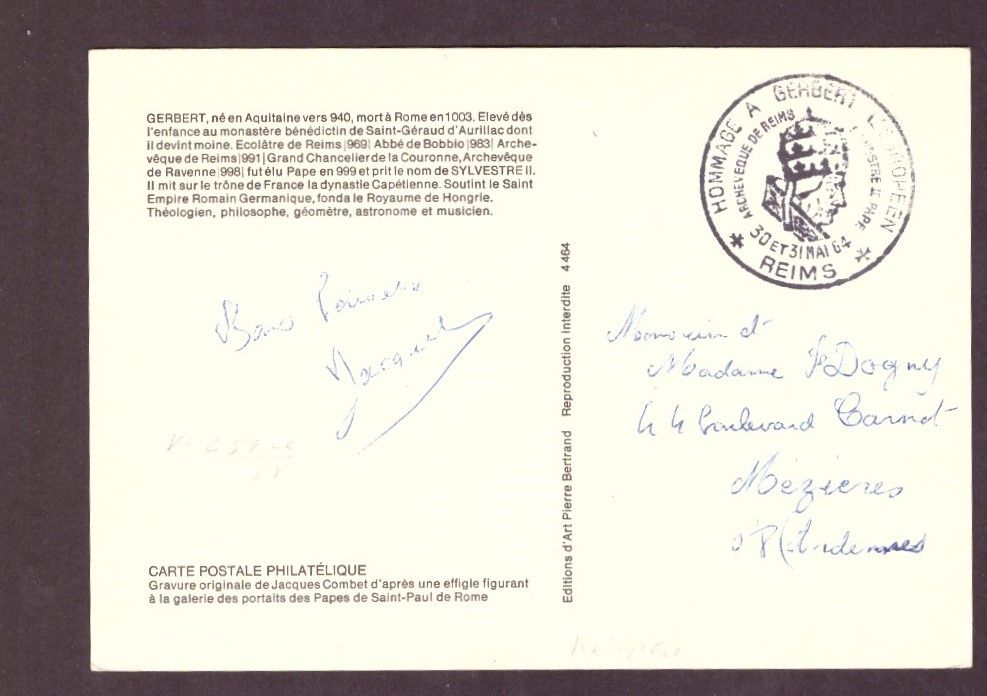 GERBERT, né en Aquitaine vers 940, mort à Rome en 1003. Elevé dès
l'enfance au monastère bénédictin de Saint-Géraud d'Aurillac dont
il devint moine. Ecolâtre de Reims |969| Abbé de Bobbio |983| Arche-
vêque de Reims |991| Grand Chancelier de la Couronne, Archevêque
de Ravenne |998| fut élu Pape en 999 et prit le nom de SYLVESTRE II.
Il mit sur le trône de France la dynastie Capétienne. Soutint le Saint
Empire Romain Germanique, fonda le Royaume de Hongrie.
Théologien, philosophe, géomètre, astronome et musicien.
HOMMAGE A GERBERT L'EUROPEEN
ARCHEVÊQUE DE REIMS
SYLVESTRE II PAPE
30 ET 31 MAI 64
* REIMS *
Bons
Jacques
Editions d'Art Pierre Bertrand Reproduction Interdite 4 464
Monsieur et
Madame Dogny
44 boulevard Carnot
Mézières
08 (Ardennes
CARTE POSTALE PHILATÉLIQUE
Gravure originale de Jacques Combet d'après une effigie figurant
à la galerie des portaits des Papes de Saint-Paul de Rome